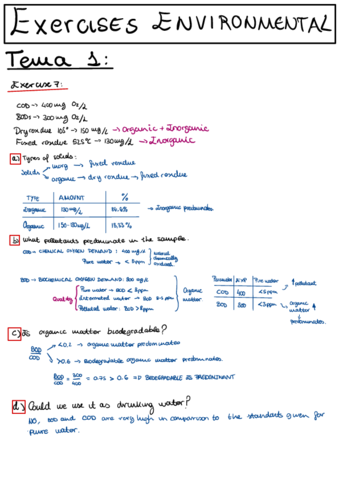 EXERCISES ENVIRONMENTAL
Tema 1:
Exercise 7:
COD → 400 mg O₂/L
BOD₅ → 300 mg O₂/L
Dry residue 105° → 150 mg/L → Organic + Inorganic
Fixed residue 525°C → 130 mg/L → Inorganic
a) Types of solids:
Solids → inorg → fixed residue
→ organic → dry residue → fixed residue
TYPE AMOUNT %
Inorganic 130 mg/L → Inorganic predominates
Organic 150-130 mg/L 13.33%
b) What pollutants predominate in the sample.
COD → CHEMICAL OXYGEN DEMAND: 400 mg/L
Pure water → < 5 ppm
chemically oxidised
BOD → BIOCHEMICAL OXYGEN DEMAND: 300 mg/L
Quality Pure water → BOD < 3 ppm
Intermated water → BOD ppm
Polluted water: BOD > 8 ppm
Organic matter
Parameter EXP Pure water
COD 400 < 5 ppm
BOD 300 < 3 ppm
↑ pollutant
organic matter ↑ predominates.
c) Is organic matter biodegradable?
BOD/COD → organic matter predominates
> 0.6 → Biodegradable organic matter predominates.
BOD/COD = 300/400 = 0.75 > 0.6 ⇒ BIODEGRADABLE IS PREDOMINANT
d) Could we use it as drinking water?
NO, BOD and COD are very high in comparison to the standards given for
pure water.